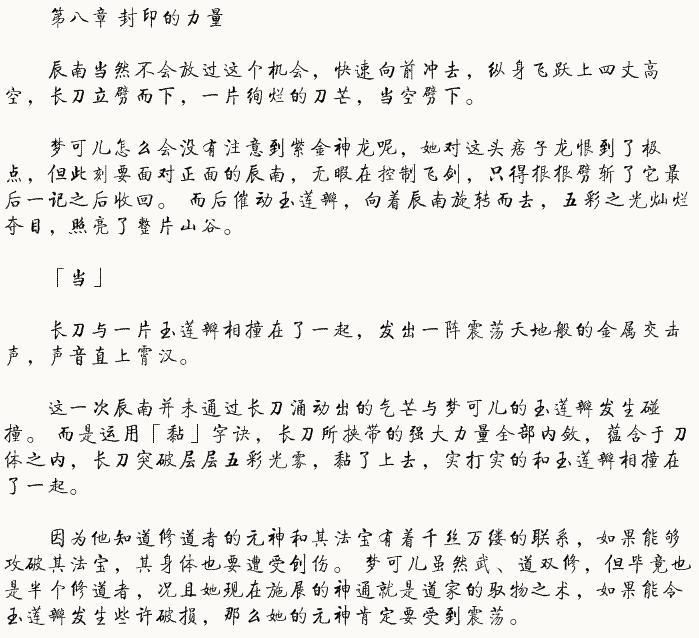 第八章 封印的力量
辰南当然不会放过这个机会，快速向前冲去，纵身飞跃上四丈高
空，长刀立劈而下，一片绚烂的刀芒，当空劈下。
梦可儿怎么会没有注意到紫金神龙呢，她对这头痞子龙恨到了极
点，但此刻要面对正面的辰南，无暇在控制飞剑，只得狠狠劈斩了它最
后一记之后收回。 而后催动玉莲瓣，向着辰南旋转而去，五彩之光灿烂
夺目，照亮了整片山谷。
「当」
长刀与一片玉莲瓣相撞在了一起，发出一阵震荡天地般的金属交击
声，声音直上霄汉。
这一次辰南并未通过长刀涌动出的气芒与梦可儿的玉莲瓣发生碰
撞。 而是运用「黏」字诀，长刀所挟带的强大力量全部内敛，蕴含于刀
体之内，长刀突破层层五彩光雾，黏了上去，实打实的和玉莲瓣相撞在
了一起。
因为他知道修道者的元神和其法宝有着千丝万缕的联系，如果能够
攻破其法宝，其身体也要遭受创伤。 梦可儿虽然武、道双修，但毕竟也
是半个修道者，况且她现在施展的神通就是道家的驭物之术，如果能令
玉莲瓣发生些许破损，那么她的元神肯定要受到震荡。